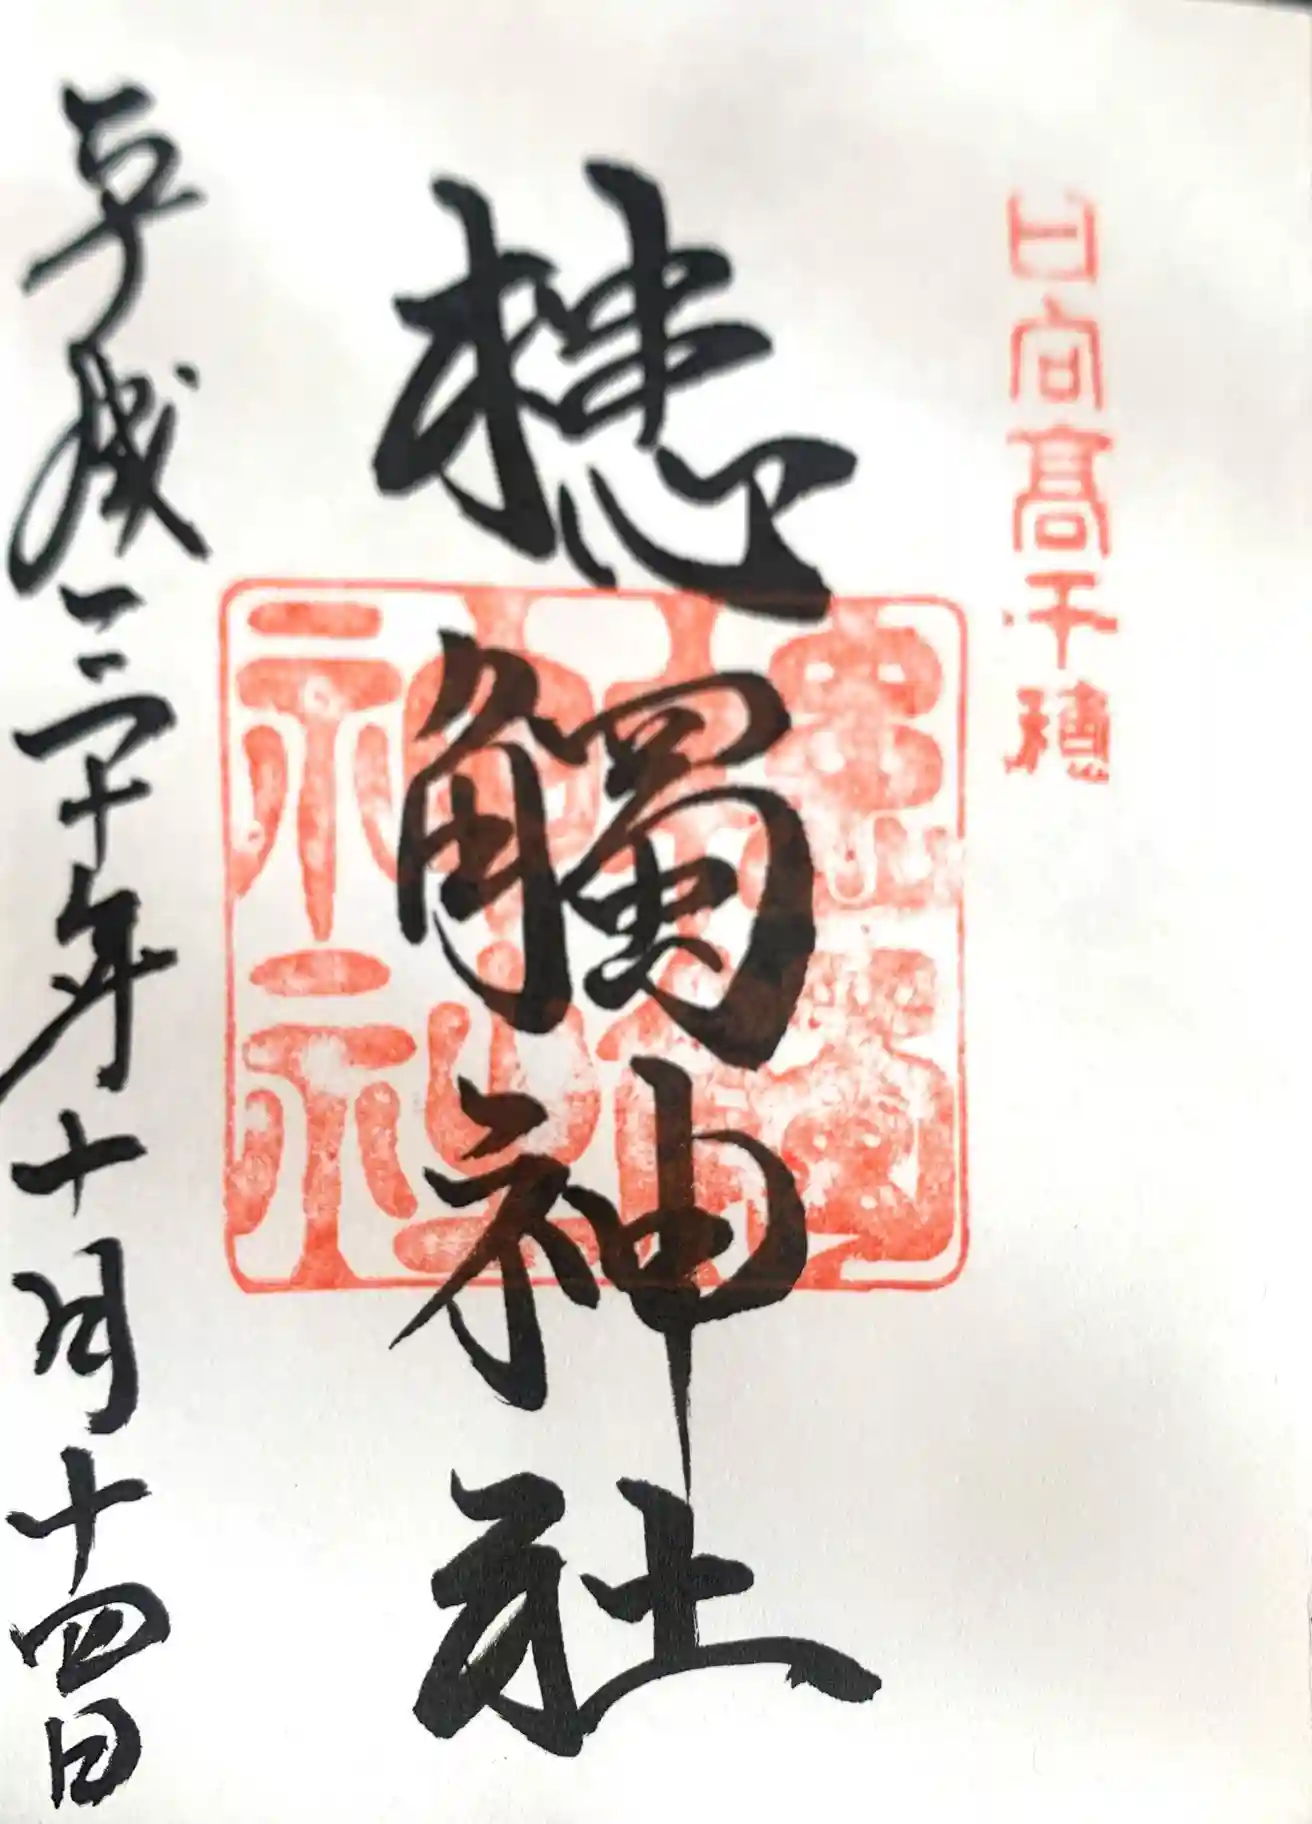 日向高千穂
槵觸神社
槵觸
神社
平成三十年十月十四日